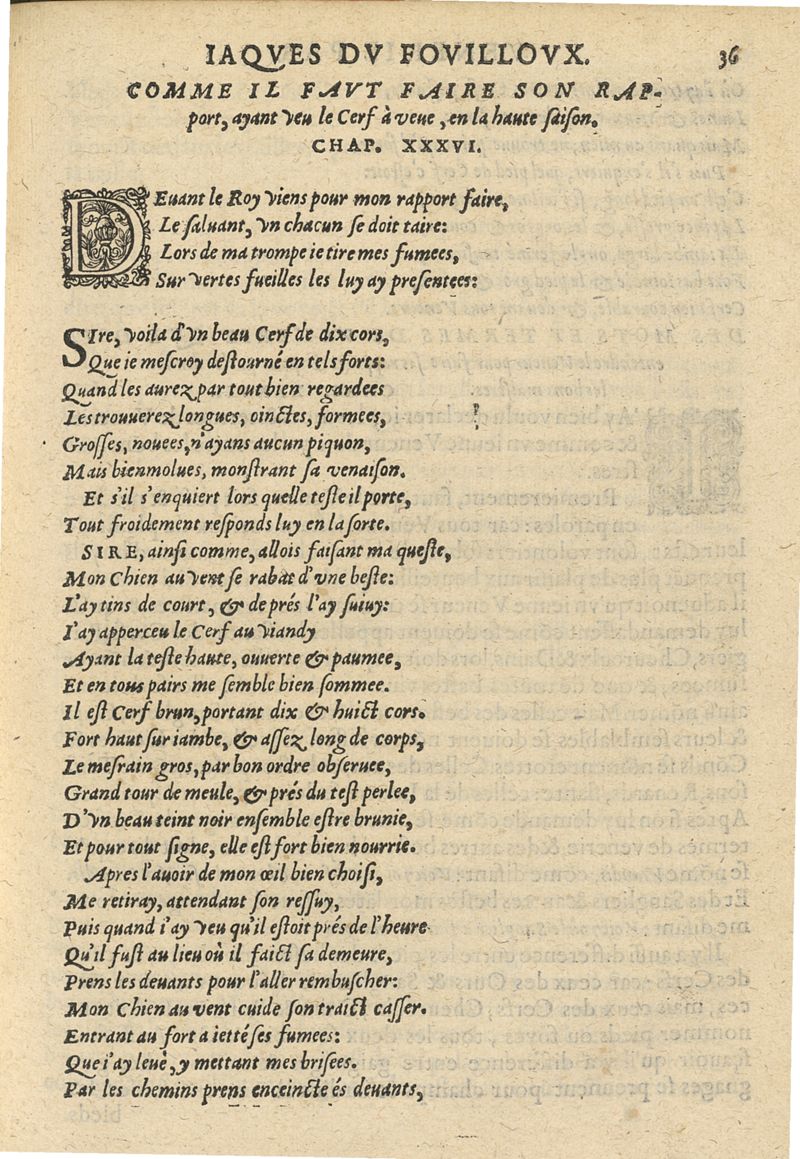 IAQVES DV FOVILLOVX. 36
COMME IL FAVT FAIRE SON RAP-
port, ayant veu le Cerf à veue, en la haute saison.
CHAP. XXXVI.
DEuant le Roy viens pour mon rapport faire,
Le saluant, vn chacun se doit taire:
Lors de ma trompe ie tire mes fumees,
Sur vertes fueilles les luy ay presentees:
SIre, voila d'vn beau Cerf de dix cors,
Que ie mescroy destourné en tels forts:
Quand les aurez par tout bien regardees
Les trouuerez longues, oinctes, formees,
Grosses, nouees, n'ayans aucun piquon,
Mais bien molues, monstrant sa venaison.
Et s'il s'enquiert lors quelle teste il porte,
Tout froidement responds luy en la sorte.
SIRE, ainsi comme, allois faisant ma queste,
Mon Chien au vent se rabat d'vne beste:
L'ay tins de court, & de prés l'ay suiuy:
I'ay apperceu le Cerf au viandy
Ayant la teste haute, ouuerte & paumee,
Et en tous pairs me semble bien sommee.
Il est Cerf brun, portant dix & huict cors.
Fort haut sur iambe, & assez long de corps,
Le mesrain gros, par bon ordre obseruee,
Grand tour de meule, & prés du test perlee,
D'vn beau teint noir ensemble estre brunie,
Et pour tout signe, elle est fort bien nourrie.
Apres l'auoir de mon œil bien choisi,
Me retiray, attendant son ressuy,
Puis quand i'ay veu qu'il estoit prés de l'heure
Qu'il fust au lieu où il faict sa demeure,
Prens les deuants pour l'aller rembuscher:
Mon Chien au vent cuide son traict casser.
Entrant au fort a ietté ses fumees:
Que i'ay leuè, y mettant mes brisees.
Par les chemins prens enceincte és deuants,